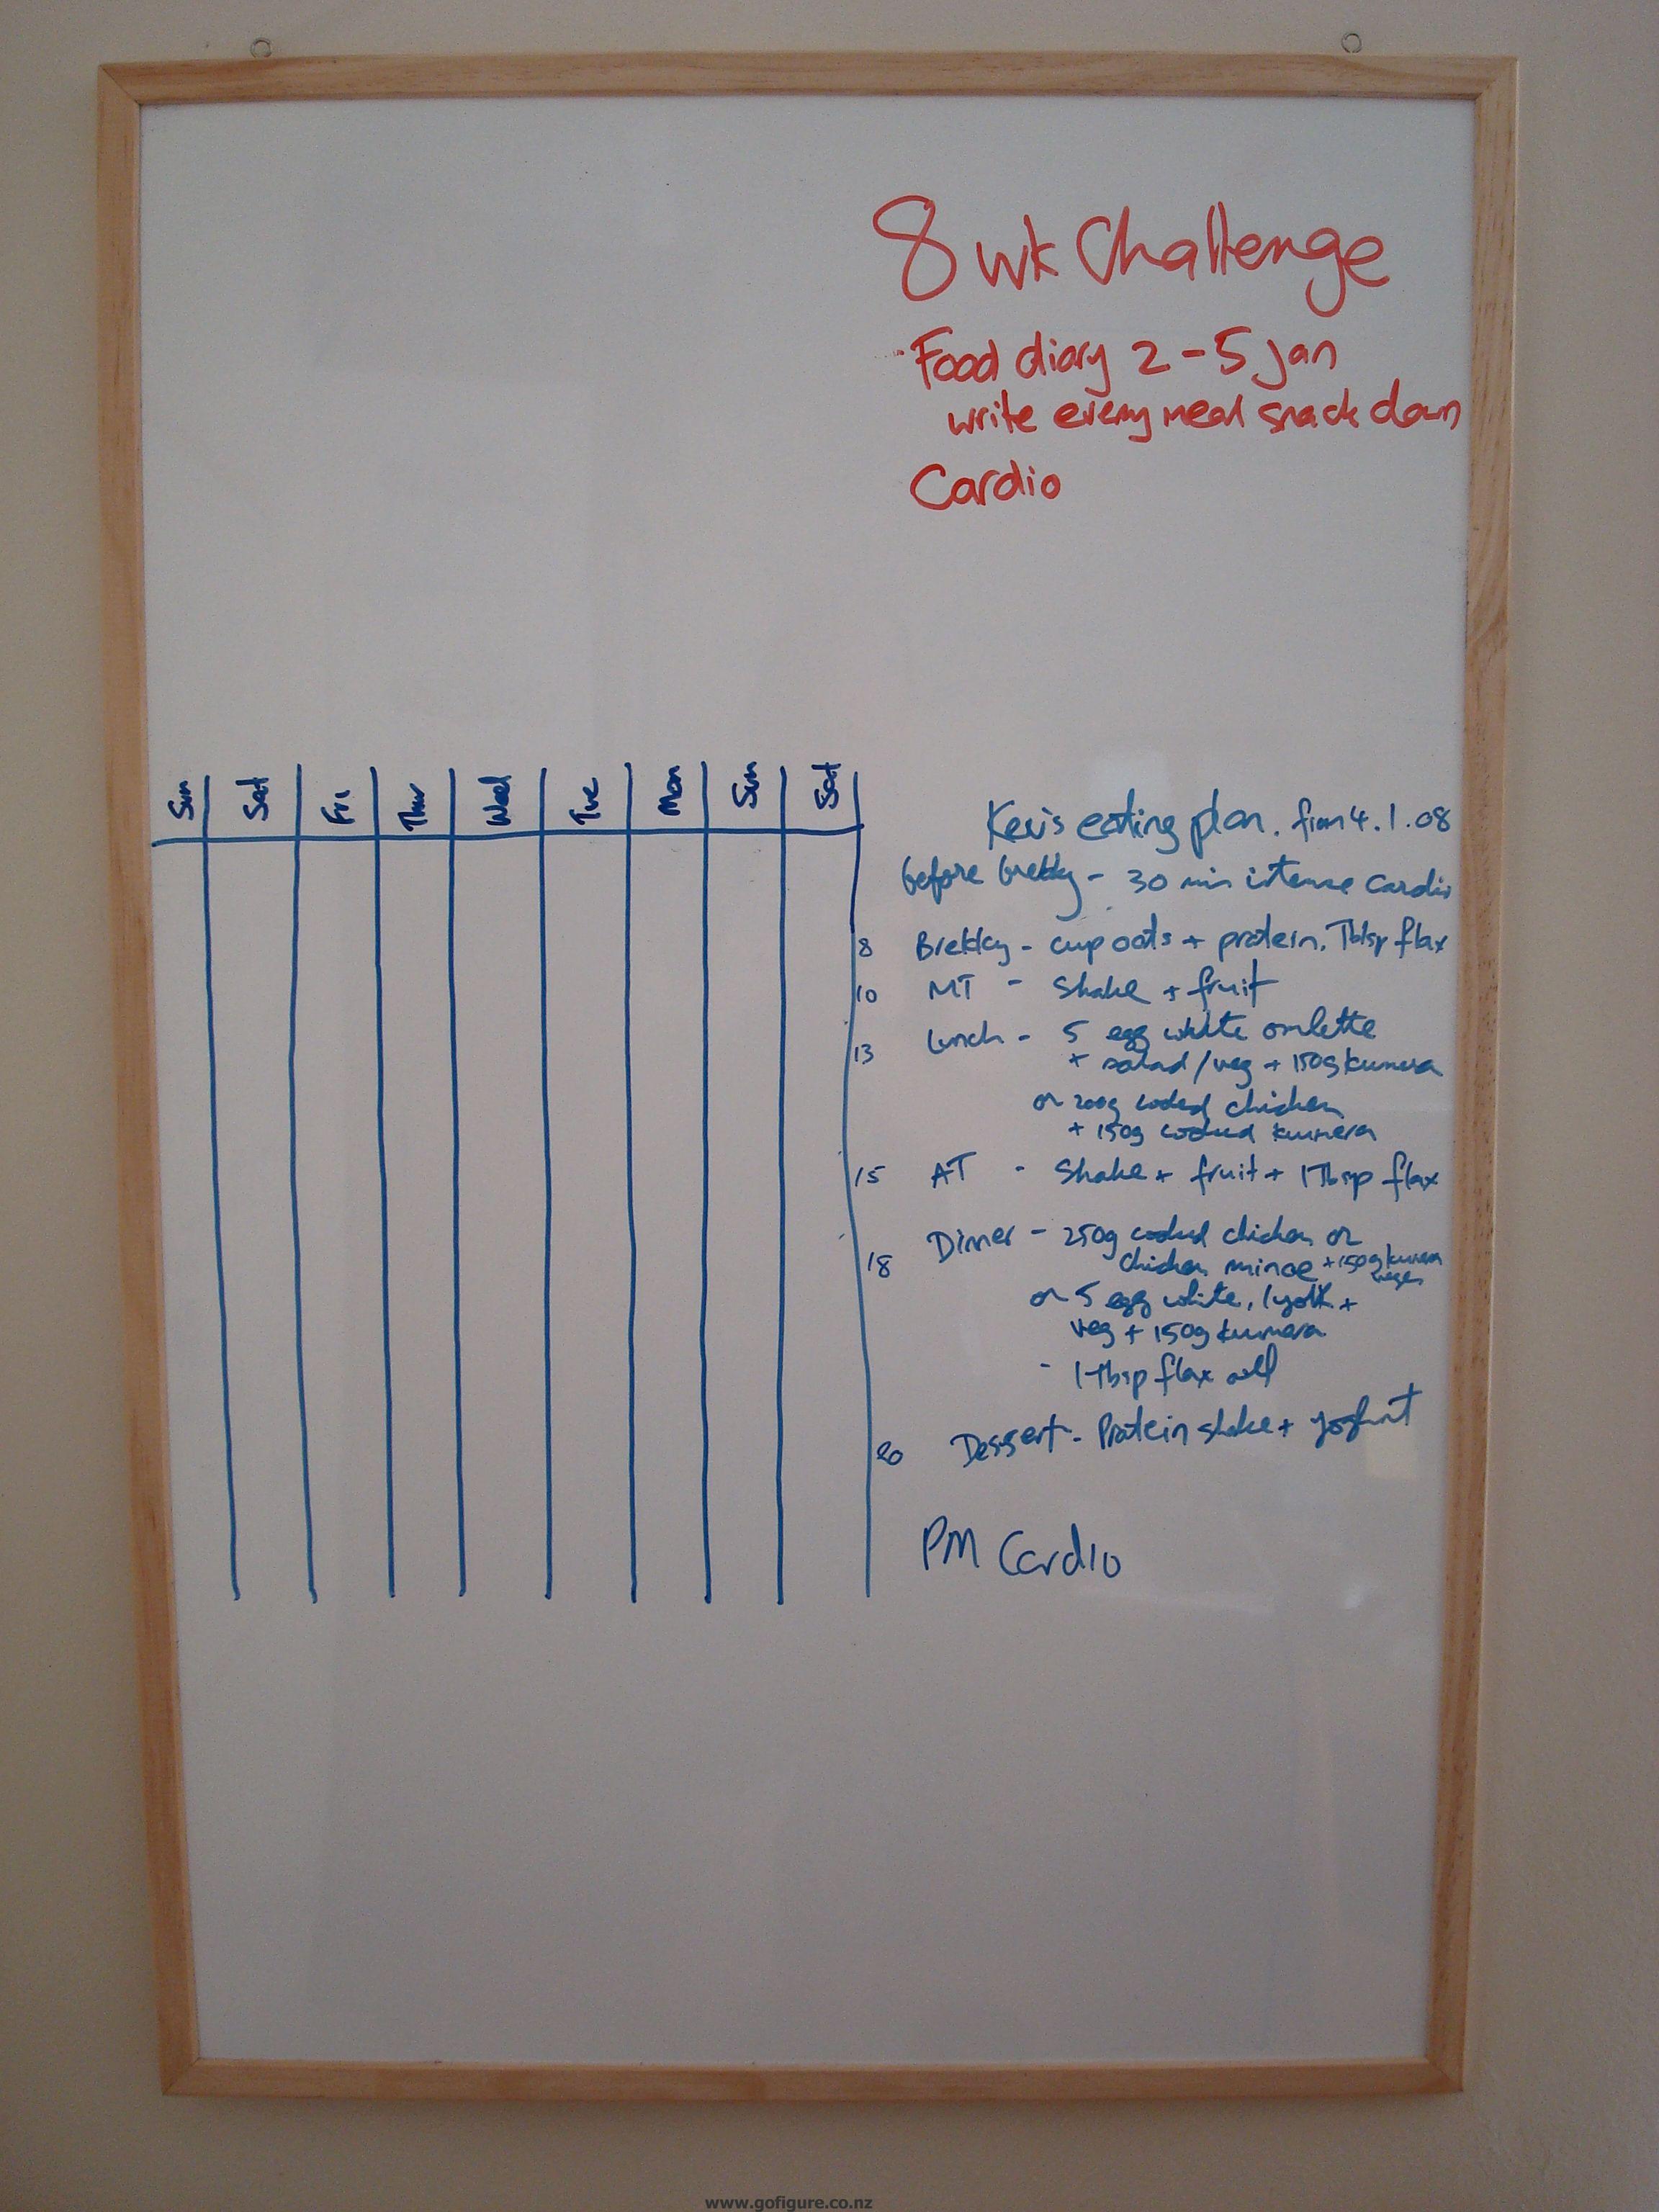 8 wk Challenge
Food diary 2-5 Jan
write every meal snack down
Cardio
Sun Sat Fri Thur Wed Tue Mon Sun Sat
Kev's eating plan. from 4.1.08
before brekky - 30 min intense cardio
8 Brekky - cup oats + protein. Tblsp flax
10 MT - Shake + fruit
13 Lunch - 5 egg white omlette
+ salad/veg + 150g kumera
or 200g cooked chicken
+ 150g cooked kumera
15 AT - Shake + fruit + 1 Tbsp flax
18 Dinner - 250g cooked chicken or
chicken mince + 150g kumera
veges
or 5 egg white, 1 yolk +
veg + 150g kumara
- 1 Tbsp flax
20 Dessert - Protein shake + yoghurt
PM Cardio
www.gofigure.co.nz